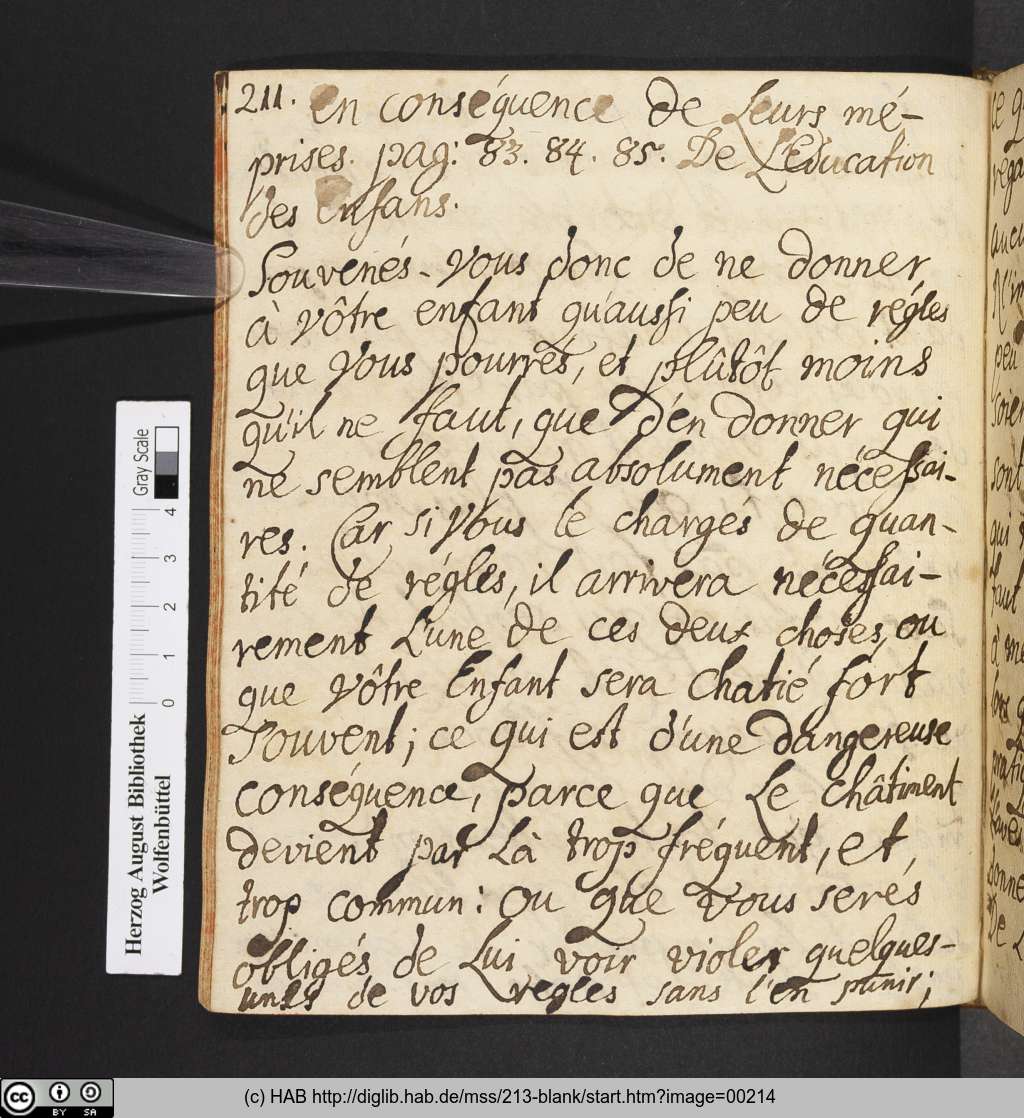 211. En conséquence de Leurs mé-
prises. pag: 83. 84. 85. De L'Education
des Enfans.
Souvenés-vous donc de ne donner
à vôtre enfant qu'aussi peu de régles
que vous pourrés, et plûtôt moins
qu'il ne faut, que d'en donner qui
ne semblent pas absolument nécessai-
res. Car si vous le chargés de quan-
tité de régles, il arrivera nécessai-
rement L'une de ces deux choses, ou
que vôtre Enfant sera chatié fort
souvent; ce qui est d'une dangereuse
conséquence, parce que Le châtiment
devient par Là trop fréquent, et,
trop commun: ou que vous serés
obligés de Lui voir violer quelques-
unes de vos regles sans l'en punir;
Herzog August Bibliothek
Wolfenbüttel
Gray Scale
0 1 2 3 4
cc BY SA
(c) HAB http://diglib.hab.de/mss/213-blank/start.htm?image=00214